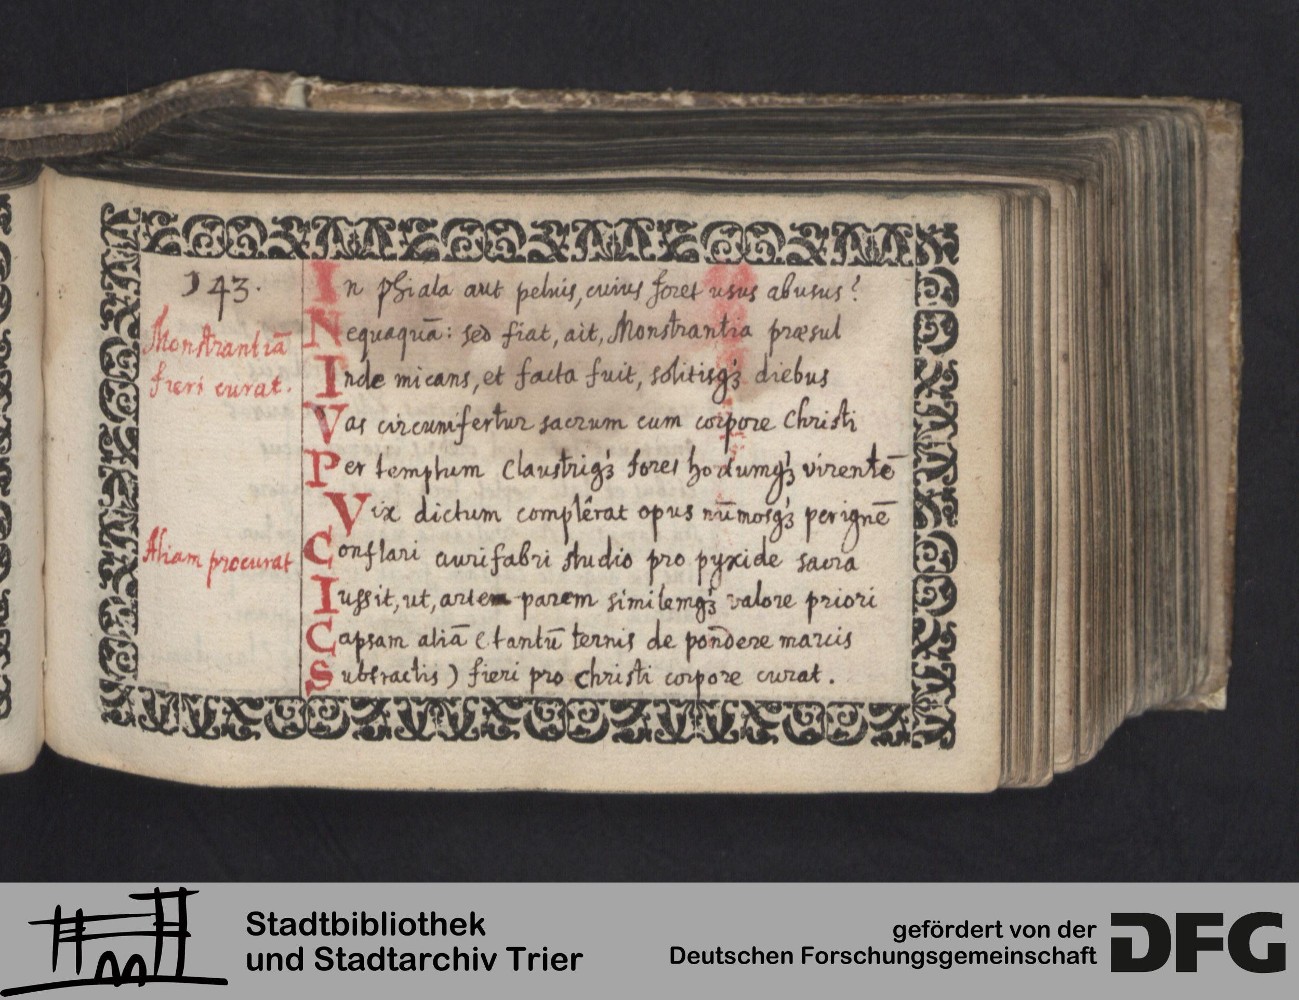 143.
Monstrantiā
fieri curat.
In phiala aut peluis, cuius foret usus abusus?
Nequaquā: sed fiat, ait, Monstrantia præsul
Inde micans, et facta fuit, solitisqꝫ diebus
Vas circumfertur sacrum cum corpore Christi
Per templum Claustriqꝫ fores hodumqꝫ virentē
Vix dictum complêrat opus nūmosqꝫ per ignē
Aliam procurat
Conflari aurifabri studio pro pyxide sacra
Iussit, ut, artem parem similemqꝫ valore priori
Capsam aliā (tantū ternis de pondere marcis
Subtractis) fieri pro Christi corpore curat.
Stadtbibliothek
und Stadtarchiv Trier
gefördert von der
Deutschen Forschungsgemeinschaft
DFG